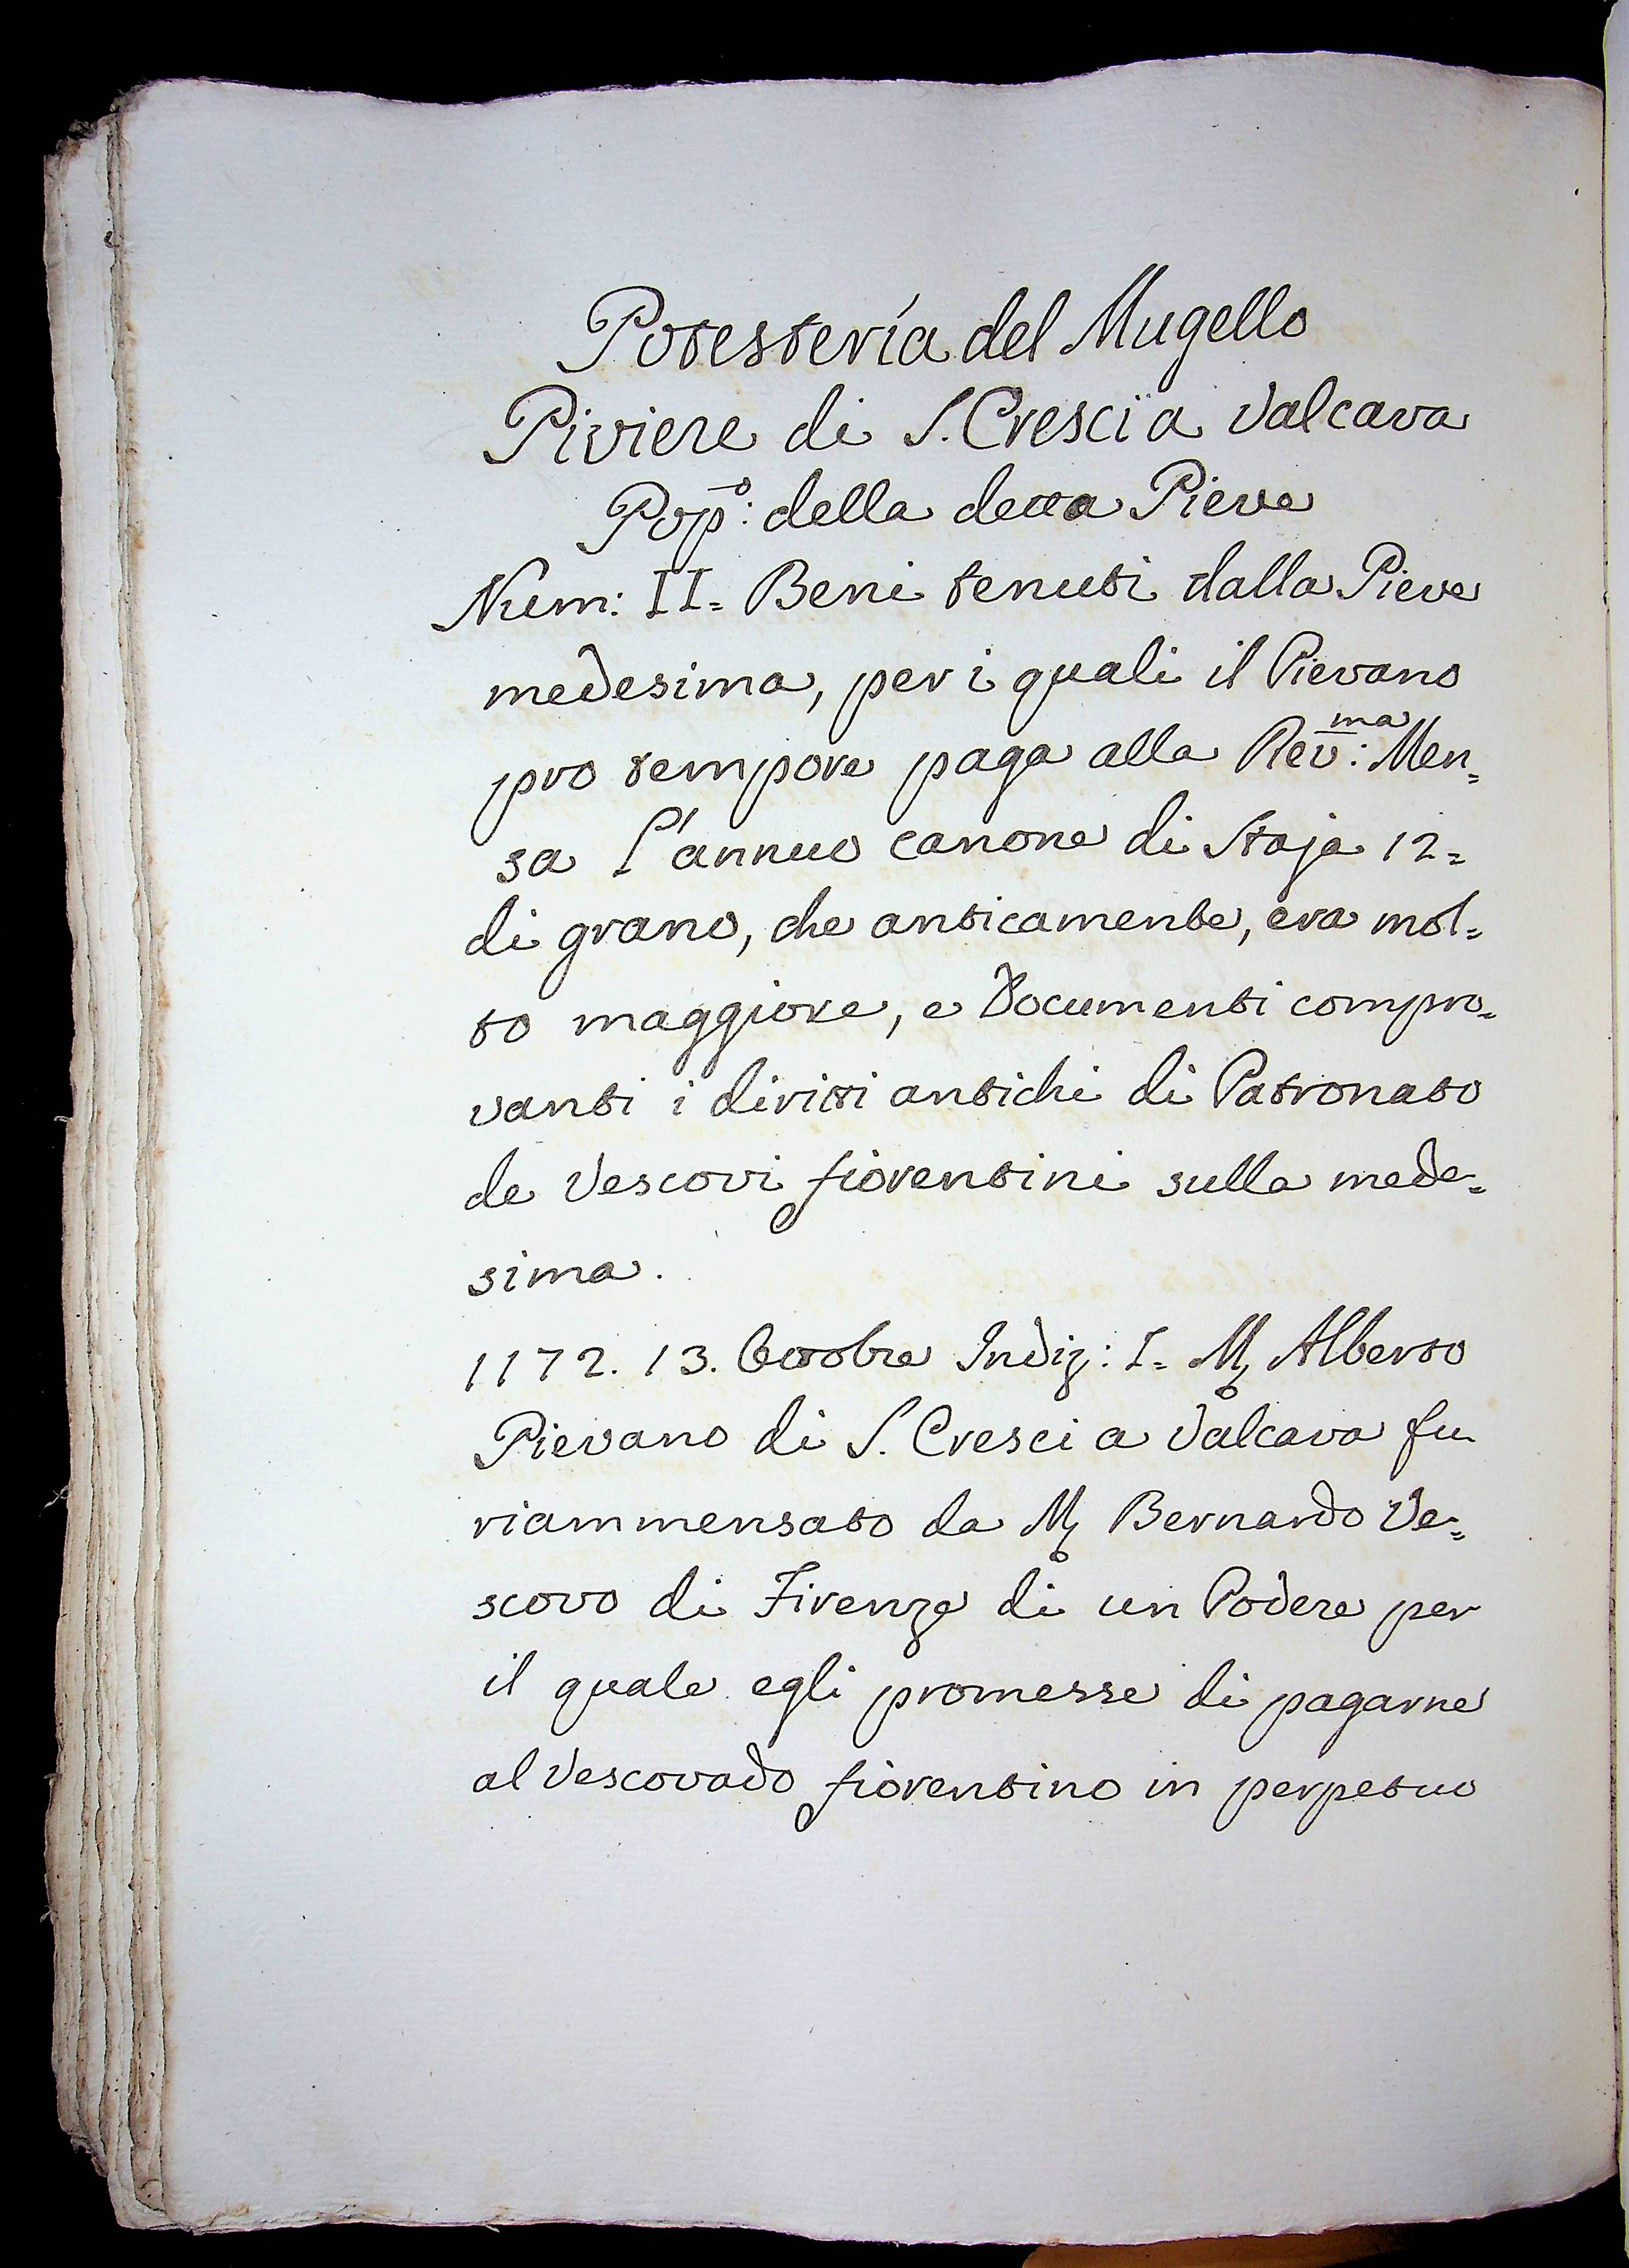 Potesterìa del Mugello
Piviere di S. Cresci a Valcava
Pop:º della detta Pieve
Num: II= Beni tenuti dalla Pieve
medesima, per i quali il Pievano
pro tempore paga alla Rev:ma Men=
sa l'annuo canone di Staja 12=
di grano, che anticamente, era mol=
to maggiore, e Documenti compro=
vanti i diritti antichi di Patronato
de Vescovi fiorentini sulla mede=
sima.
1172. 13. Ottobre Indiz: I= M Alberto
Pievano di S. Cresci a Valcava fu
riammensato da M Bernardo Ve=
scovo di Firenze di un Podere per
il quale egli promesse di pagarne
al Vescovado fiorentino in perpetuo